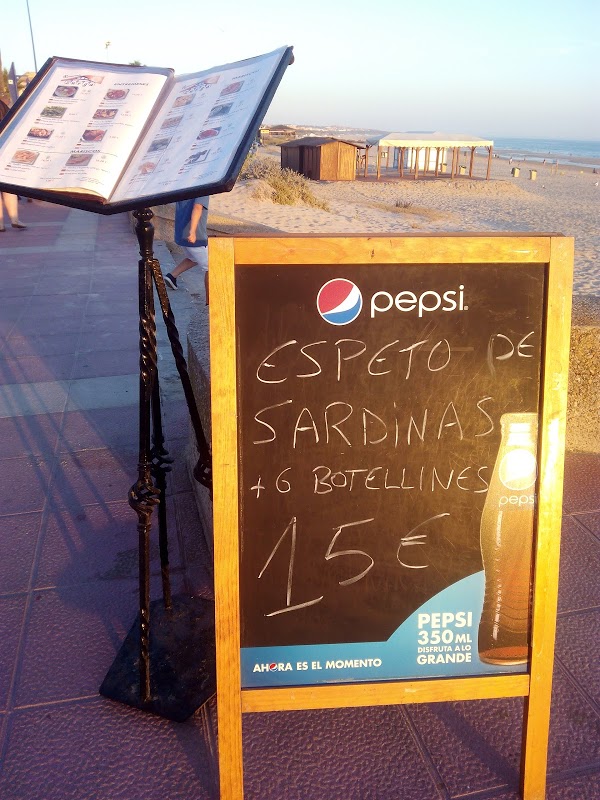 pepsi
ESPETO DE
SARDINAS
+ 6 BOTELLINES
15 €
pepsi
PEPSI
350 ML
DISFRUTA A LO
GRANDE
AHORA ES EL MOMENTO